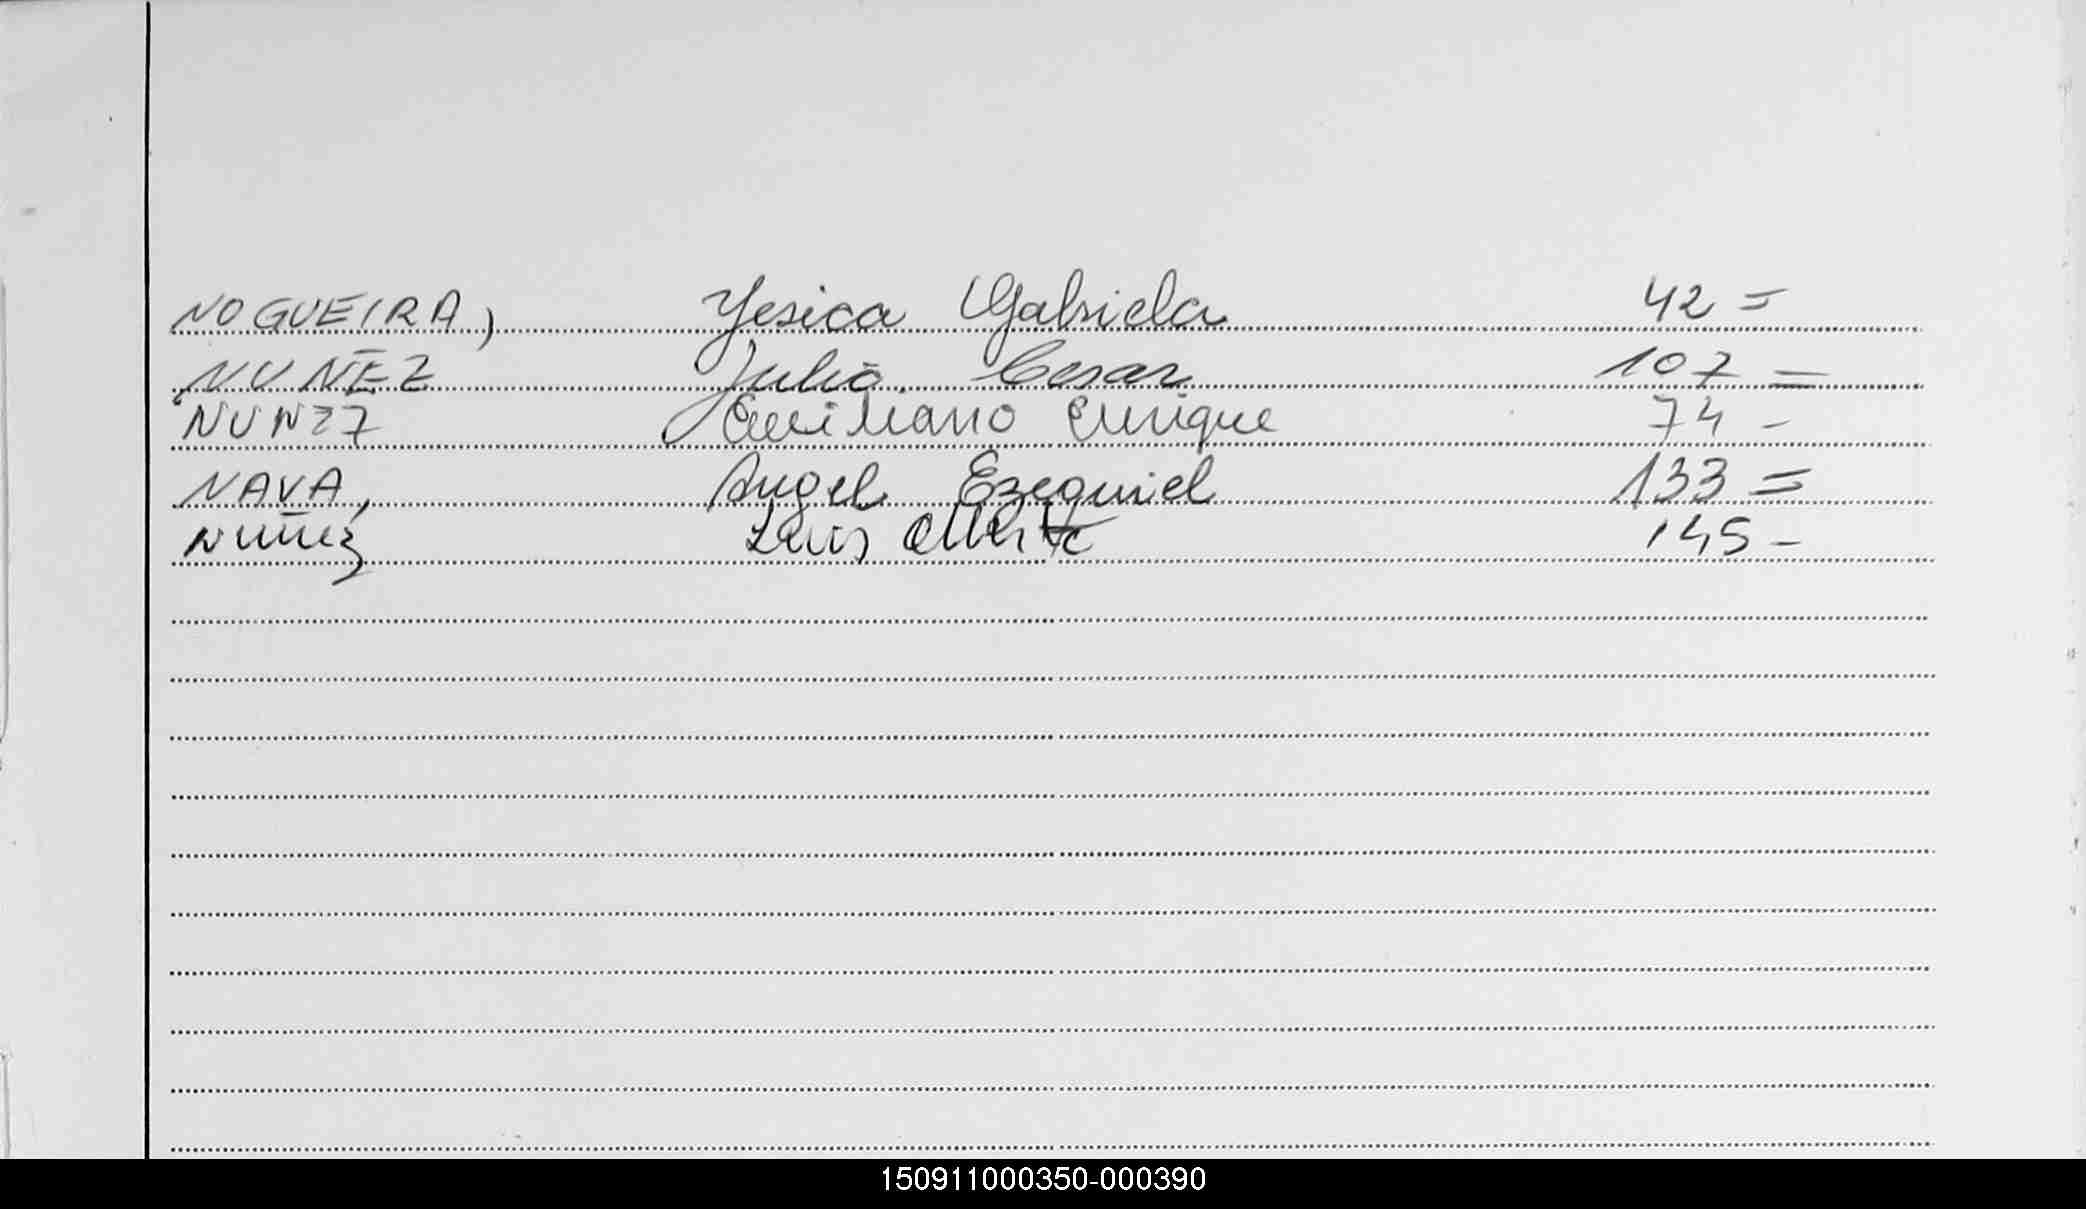 NOGUEIRA, Yesica Gabriela 42 =
NUÑEZ Julio Cesar 107 =
NUNEZ Emiliano Enrique 74 -
NAVA, Angel Ezequiel 133 =
Nuñez Luis Alberto 145 -
150911000350-000390